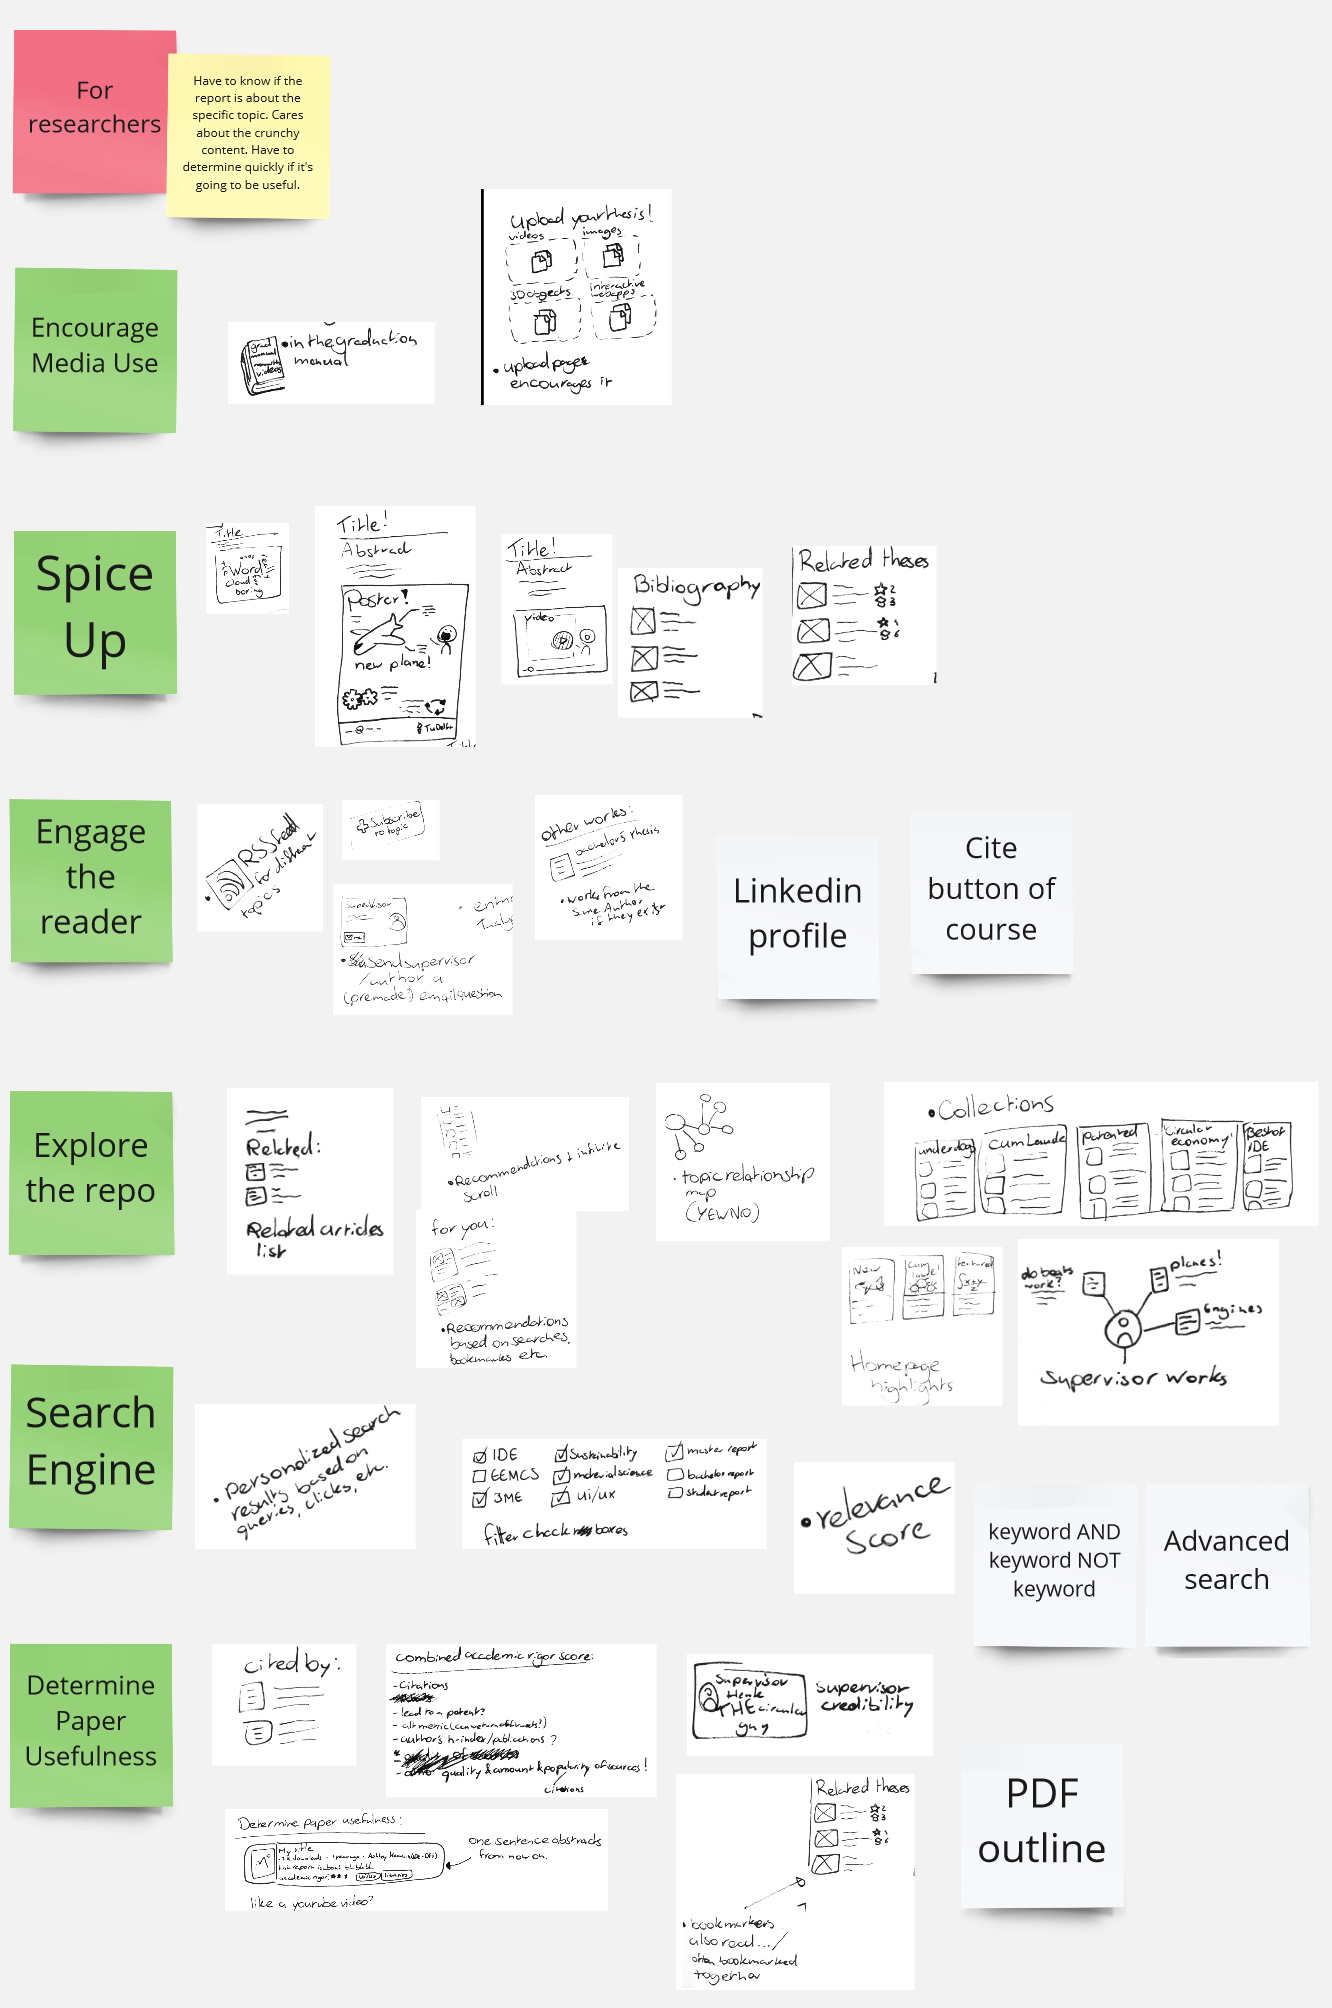 For
researchers
Have to know if the
report is about the
specific topic. Cares
about the crunchy
content. Have to
determine quickly if it's
going to be useful.
Encourage
Media Use
grad
manual
videos
• in the graduction
manual
Upload your thesis!
videos
images
3D objects
interactive
webapps
• upload page
encourages it
Spice
Up
Title
Word
cloud
boring
Title!
Abstract
Poster!
new plane!
TUDelft
Title!
Abstract
video
Bibliography
Related theses
2
3
1
6
Engage
the
reader
• RSS feed
for different
topics
Subscribe
to topic
Supervisor
• Send supervisor
/author a
(premade?) email question
other works:
bachelors thesis
• works from the
same Author
if they exist
Linkedin
profile
Cite
button of
course
Explore
the repo
Related:
Related articles
list
• Recommendations + infinite
scroll
for you:
• Recommendations
based on searches,
bookmarks etc.
• topic relationship
map
(YEWNO)
• Collections
underdog
Cum Laude
patented
circular
economy!
Best of
IDE
New
Cum
laude!
featured
Homepage
highlights
do boats
work?
planes!
Engines
Supervisor works
Search
Engine
• Personalized search
results based on
queries, clicks, etc.
IDE
EEMCS
3ME
Sustainability
material science
ui/ux
master report
bachelor report
student report
filter check boxes
• relevance
score
keyword AND
keyword NOT
keyword
Advanced
search
Determine
Paper
Usefulness
cited by:
combined academic rigor score:
- Citations
- lead to a patent?
- altmetric (conversion of tweets?)
- authors h-index/publications ?
- quality & amount & popularity of sources!
citations
Supervisor
Henk
THE circular
guy
Supervisor
credibility
PDF
outline
Determine paper usefulness:
My title
one sentence abstracts
from now on.
like a youtube video?
Related theses
2
3
1
6
• bookmarkers
also read.../
often bookmarked
together